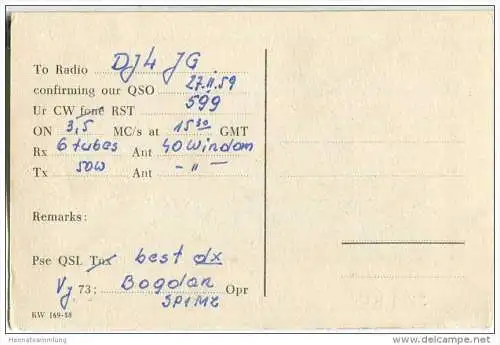 To Radio DJ4JG
confirming our QSO 27.11.59
Ur CW fone RST 599
ON 3,5 MC/s at 15 30 GMT
Rx 6 tubes Ant 40 Windom
Tx 50W Ant - " -
Remarks:
Pse QSL Tnx best dx
Vy 73; Bogdan Opr
SP1MZ
RW 169-58
Heimatsammlung